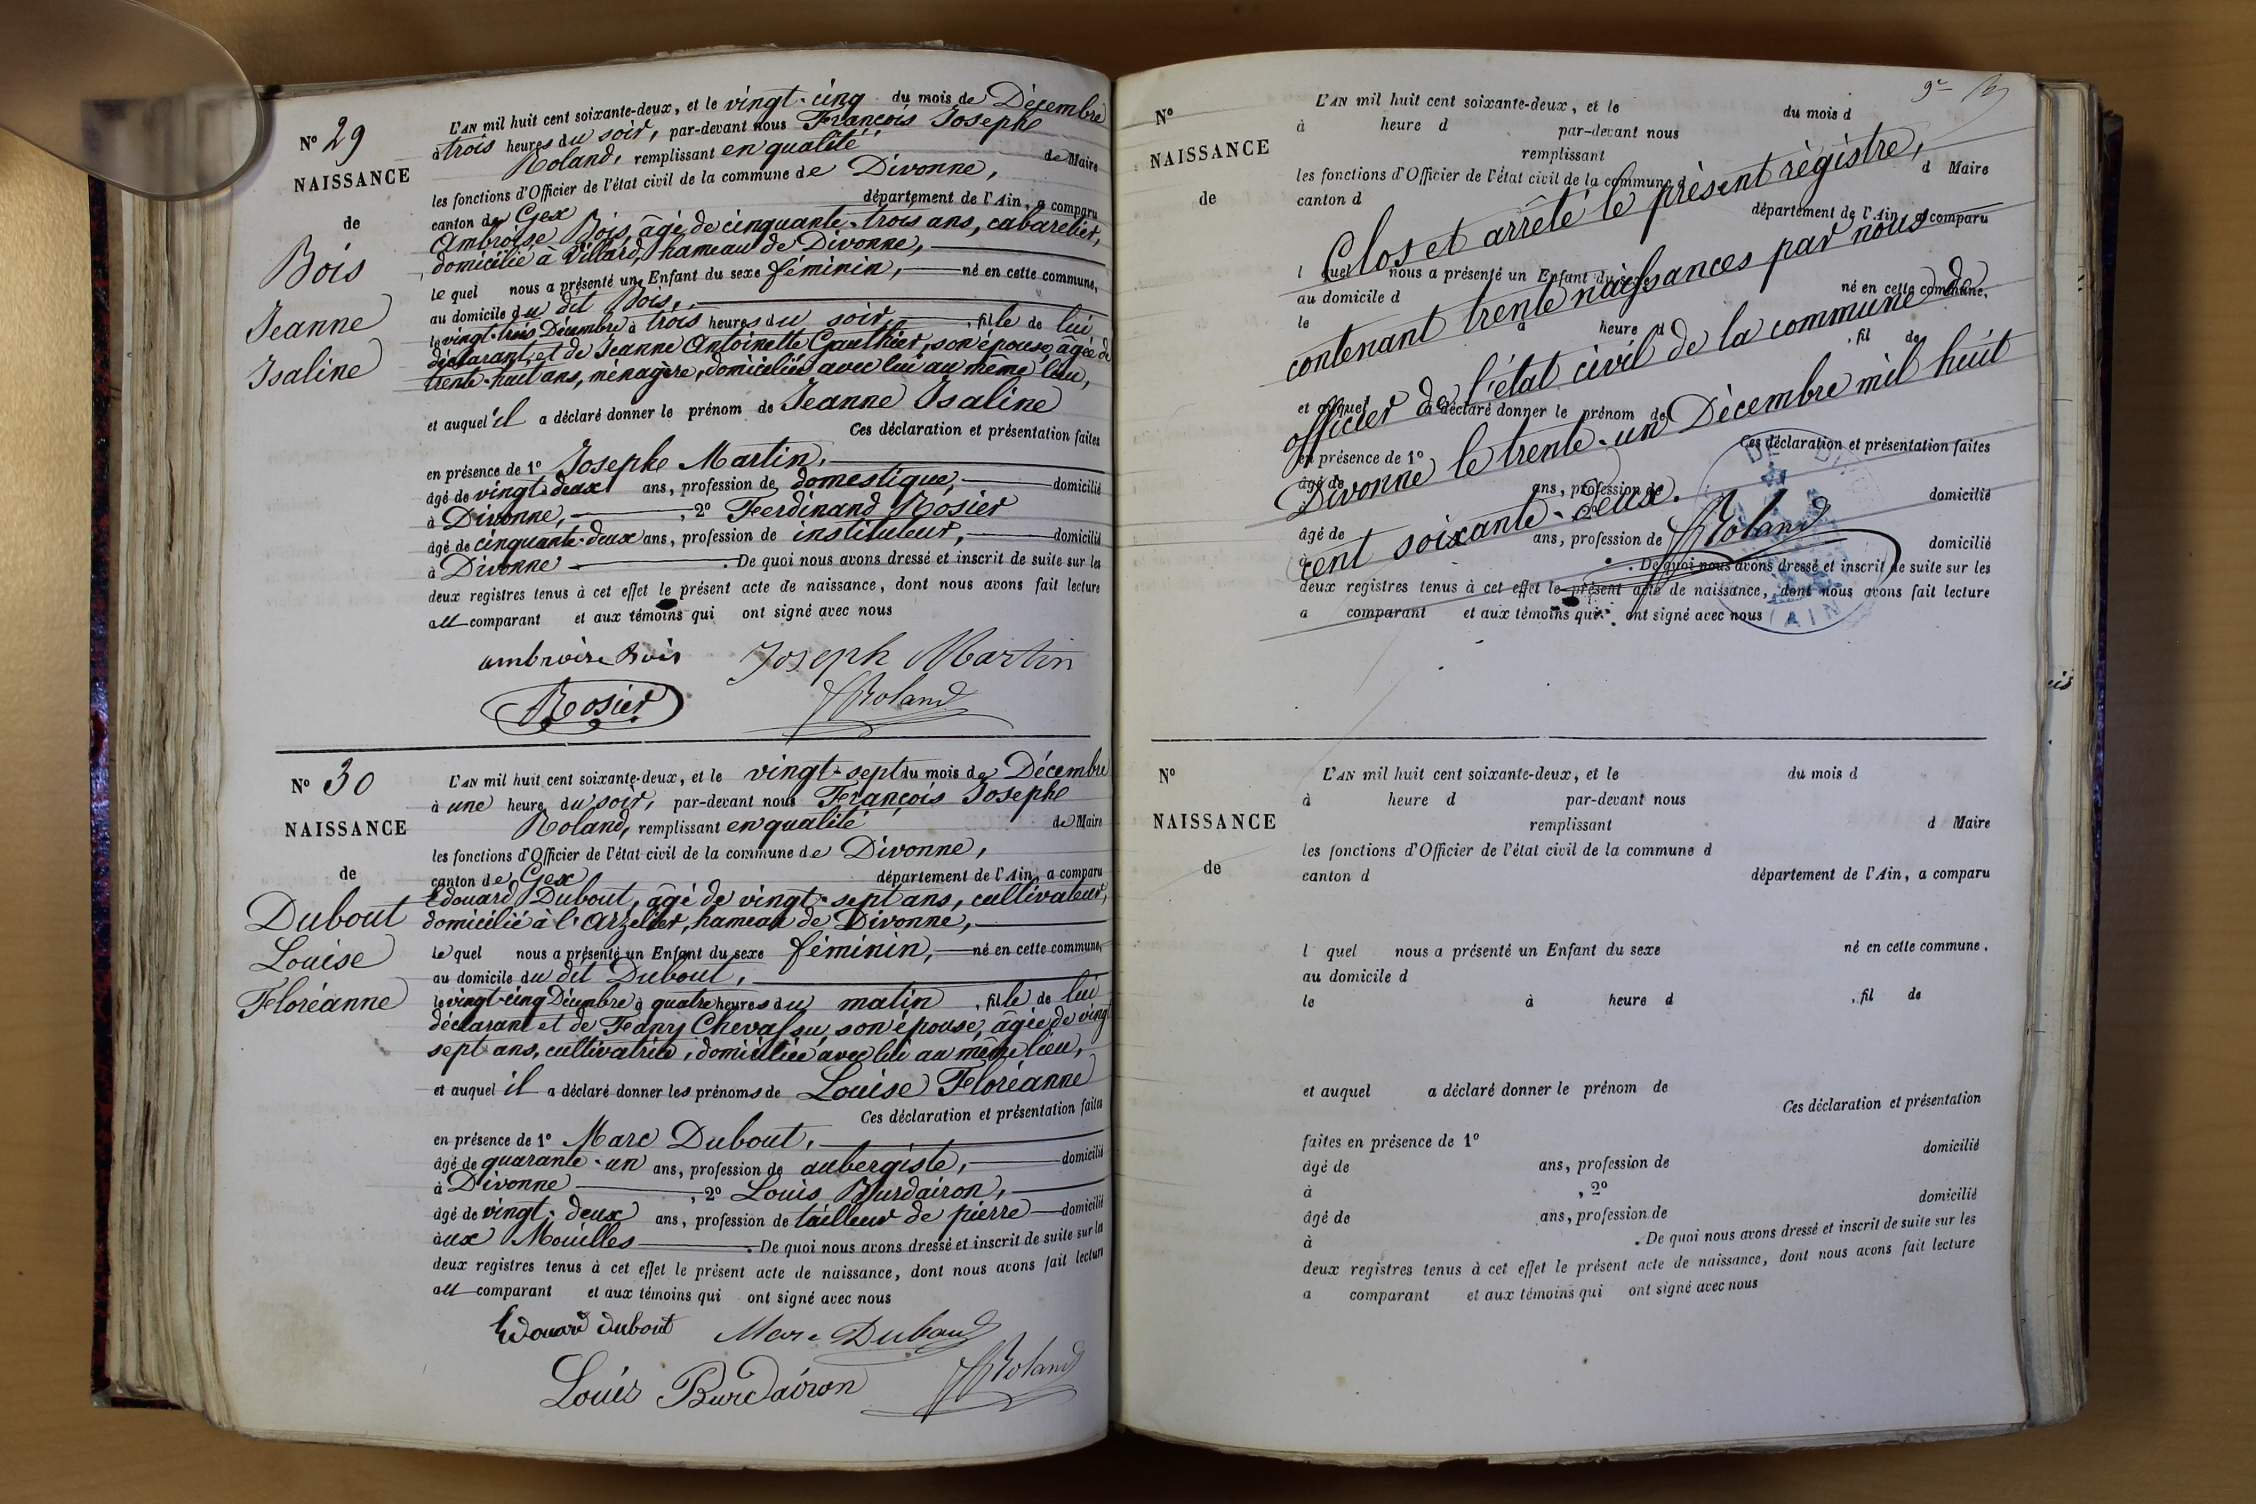 N° 29
NAISSANCE
de
Bois
Jeanne
Isaline
L'AN mil huit cent soixante-deux, et le vingt-cinq du mois de Décembre
à trois heures du soir, par-devant nous François Josephe
Roland, remplissant en qualité de Maire
les fonctions d'Officier de l'état civil de la commune de Divonne,
canton de Gex département de l'Ain, a comparu
Ambroise Bois, âgé de cinquante-trois ans, cabaretier,
domicilié à Villard, hameau de Divonne,
lequel nous a présenté un Enfant du sexe féminin, né en cette commune,
au domicile du dit Bois,
le vingt-trois Décembre à trois heures du soir, fille de lui
déclarant, et de Jeanne Antoinette Gauthier, son épouse, âgée de
trente-huit ans, ménagère, domiciliée avec lui au même lieu,
et auquel il a déclaré donner le prénom de Jeanne Isaline
Ces déclaration et présentation faites
en présence de 1° Josephe Martin,
âgé de vingt-deux ans, profession de domestique, domicilié
à Divonne, , 2° Ferdinand Rosier
âgé de cinquante-deux ans, profession de instituteur, domicilié
à Divonne . De quoi nous avons dressé et inscrit de suite sur les
deux registres tenus à cet effet le présent acte de naissance, dont nous avons fait lecture
au comparant et aux témoins qui ont signé avec nous
ambroise Bois Joseph Martin
Rosier Roland
N° 30
NAISSANCE
de
Dubout
Louise
Floréanne
L'AN mil huit cent soixante-deux, et le vingt-sept du mois de Décembre
à une heure du soir, par-devant nous François Josephe
Roland, remplissant en qualité de Maire
les fonctions d'Officier de l'état civil de la commune de Divonne,
canton de Gex département de l'Ain, a comparu
Edouard Dubout, âgé de vingt-sept ans, cultivateur,
domicilié à l'Arzelier, hameau de Divonne,
lequel nous a présenté un Enfant du sexe féminin, né en cette commune,
au domicile du dit Dubout,
le vingt-cinq Décembre à quatre heures du matin, fille de lui
déclarant et de Fany Chevassu, son épouse, âgée de vingt
sept ans, cultivatrice, domiciliée avec lui au même lieu,
et auquel il a déclaré donner les prénoms de Louise Floréanne
Ces déclaration et présentation faites
en présence de 1° Marc Dubout,
âgé de quarante-un ans, profession de aubergiste, domicilié
à Divonne , 2° Louis Burdairon,
âgé de vingt-deux ans, profession de tailleur de pierre domicilié
aux Mouilles . De quoi nous avons dressé et inscrit de suite sur les
deux registres tenus à cet effet le présent acte de naissance, dont nous avons fait lecture
au comparant et aux témoins qui ont signé avec nous
Edouard dubout Marc Dubout
Louis Burdairon Roland
N°
NAISSANCE
de
L'AN mil huit cent soixante-deux, et le du mois d
à heure d par-devant nous
remplissant d Maire
les fonctions d'Officier de l'état civil de la commune d
canton d département de l'Ain, a comparu
l quel nous a présenté un Enfant du sexe
au domicile d né en cette commune,
le à heure d , fil de
et auquel a déclaré donner le prénom de
Ces déclaration et présentation faites
en présence de 1°
âgé de ans, profession de domicilié
âgé de ans, profession de domicilié
à . De quoi nous avons dressé et inscrit de suite sur les
deux registres tenus à cet effet le présent acte de naissance, dont nous avons fait lecture
a comparant et aux témoins qui ont signé avec nous
Clos et arrêté le présent régistre,
contenant trente naissances par nous
officier de l'état civil de la commune de
Divonne le trente-un Décembre mil huit
cent soixante-deux.
Roland
AIN
N°
NAISSANCE
de
L'AN mil huit cent soixante-deux, et le du mois d
à heure d par-devant nous
remplissant d Maire
les fonctions d'Officier de l'état civil de la commune d
canton d département de l'Ain, a comparu
l quel nous a présenté un Enfant du sexe né en cette commune,
au domicile d
le à heure d , fil de
et auquel a déclaré donner le prénom de
Ces déclaration et présentation
faites en présence de 1°
âgé de ans, profession de domicilié
à , 2°
âgé de ans, profession de domicilié
à . De quoi nous avons dressé et inscrit de suite sur les
deux registres tenus à cet effet le présent acte de naissance, dont nous avons fait lecture
a comparant et aux témoins qui ont signé avec nous